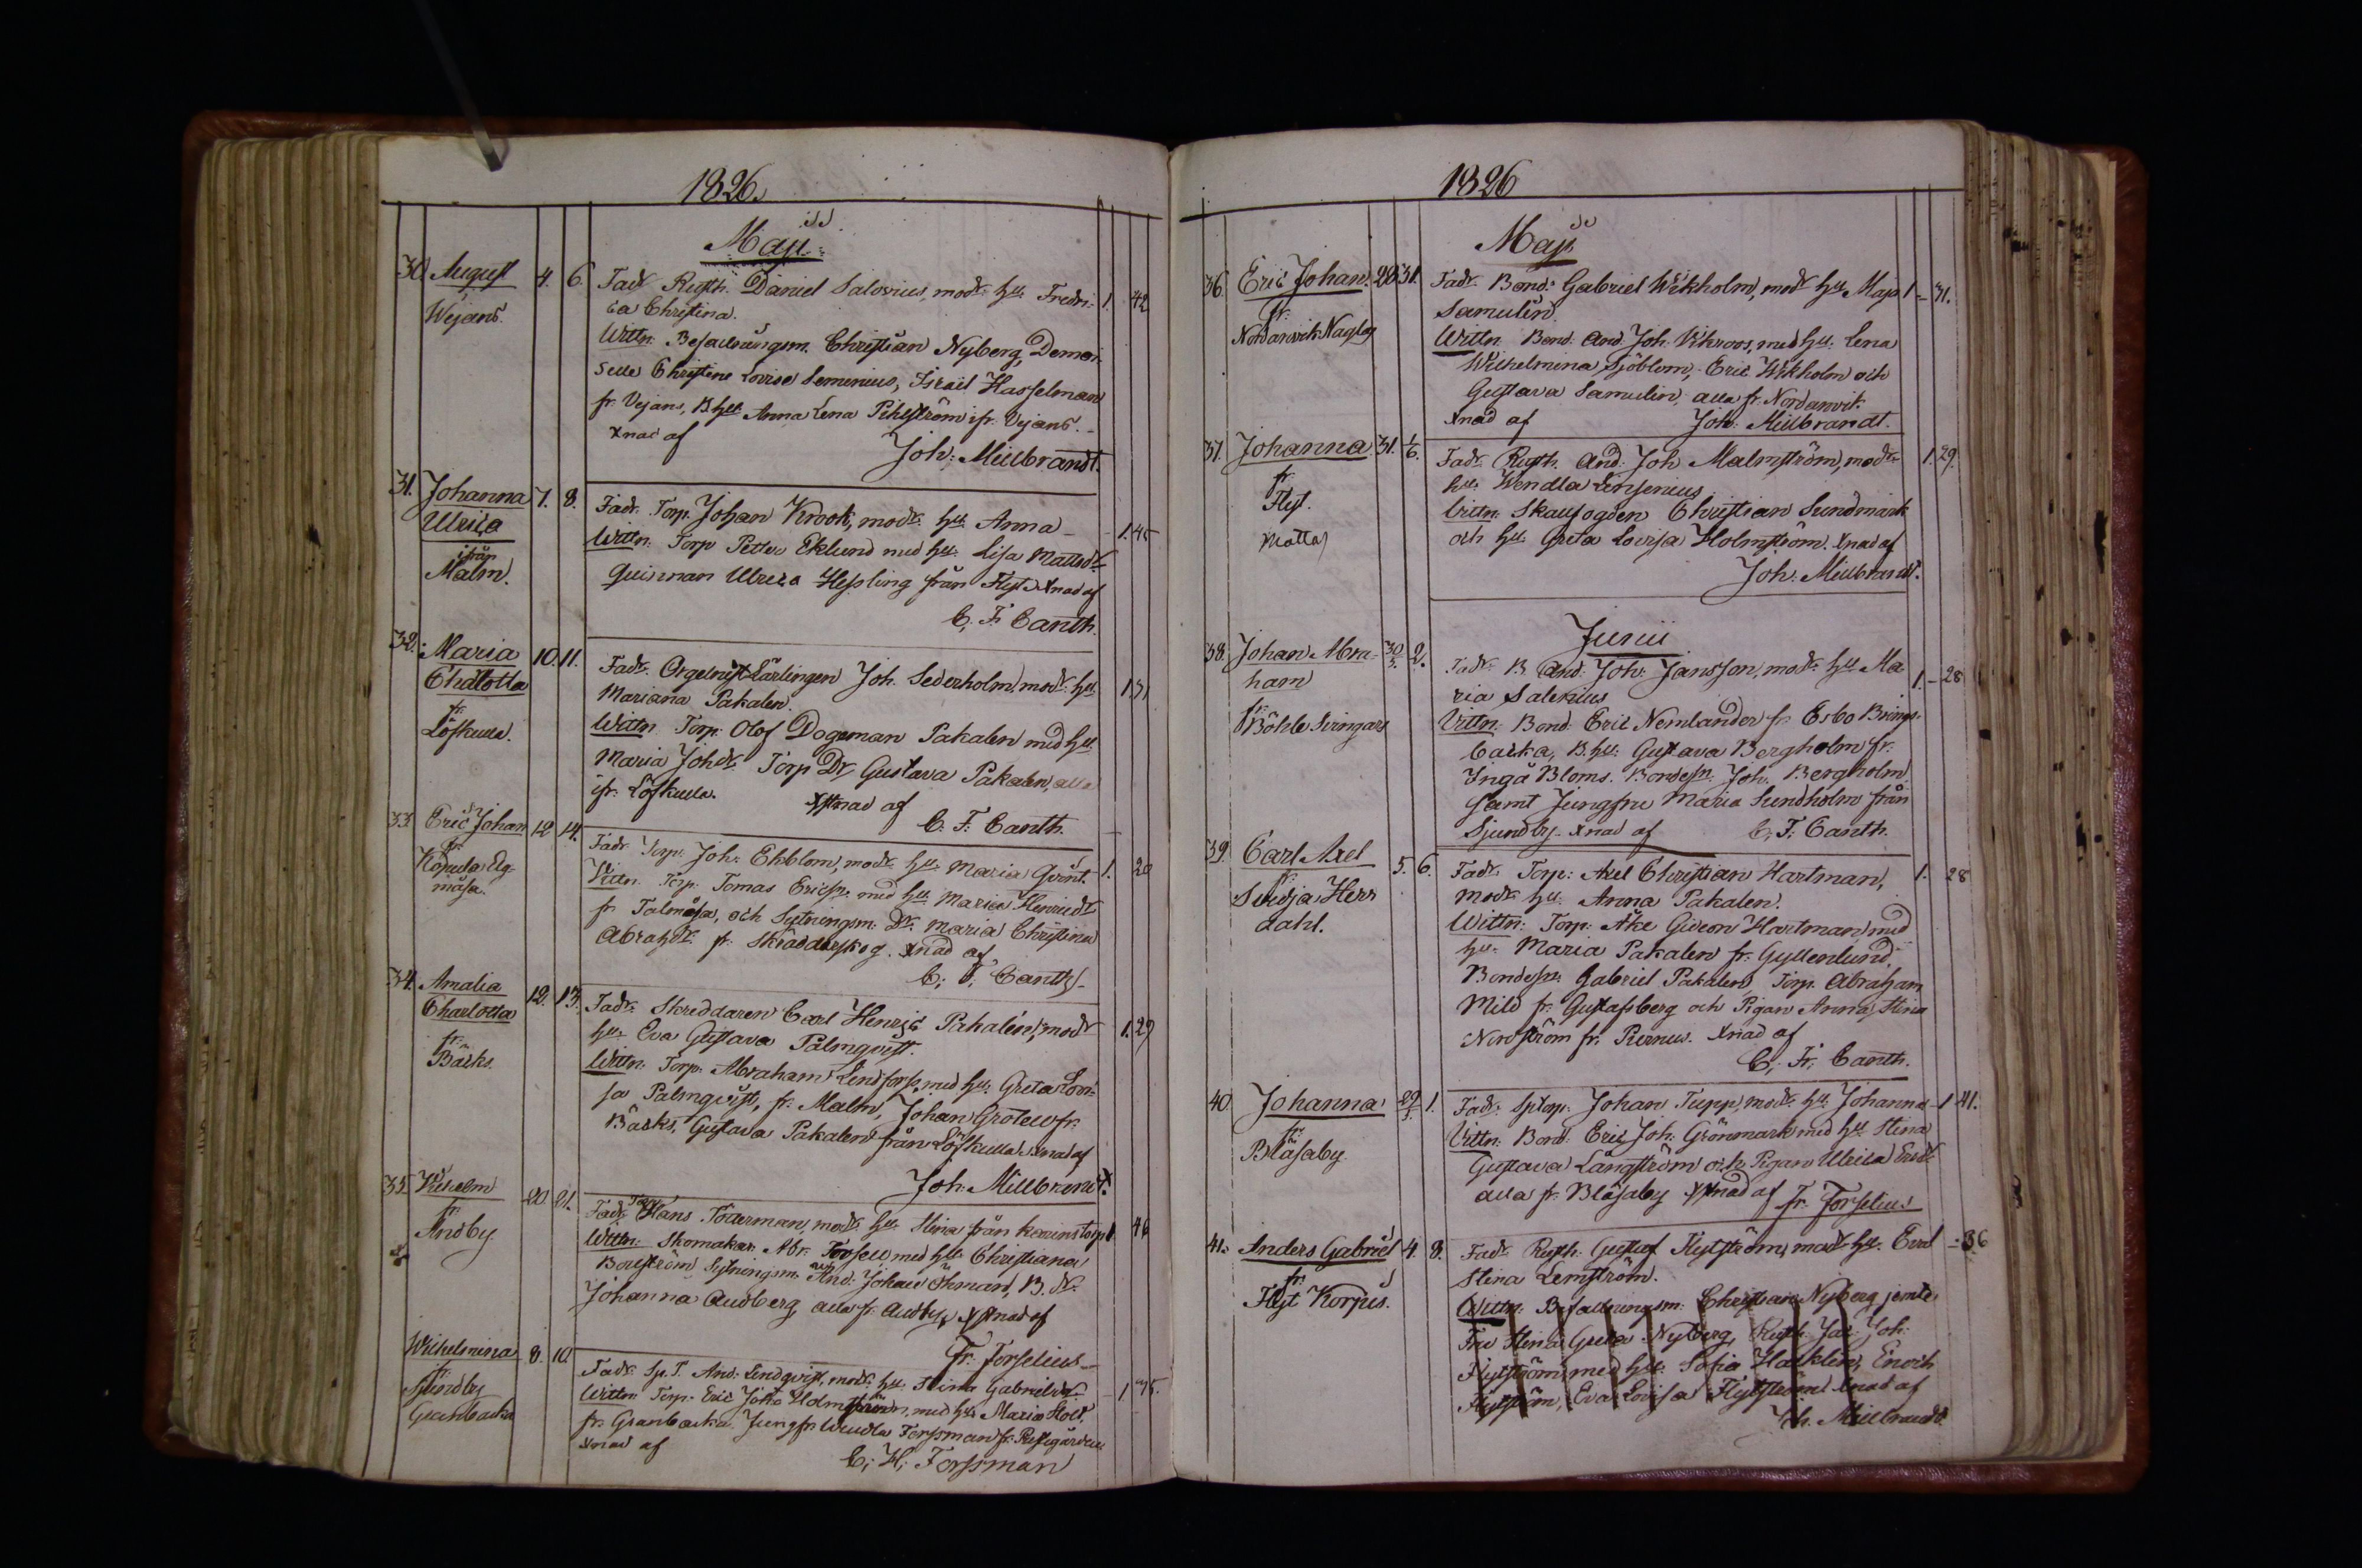 1826.
Maji
30. August 4. 6. Fadr. Rusth. Daniel Salovius, modr. hu. Fredri- 1. 42
Wejans. ca Christina.
Wittn. Befallningsm. Christian Nyberg, Demoi-
selle Christine Lovisa Semenius, Israel Hasselman
fr. Vejans, B. hu. Anna Lena Pihlström ifr. Vejans.
Xnad af
Joh: Millbrandt.
31. Johanna 7. 8. Fadr. Torp. Johan Krook, modr. hu. Anna 1. 45
Ulrica Wittn. Torp Petter Eklund med hu. Lisa Mattsdr.
ifrån Quinnan Ulrica Hessling från Flyt Xnad af
Malm. C. F. Canth.
32. Maria 10. 11. Fadr. Orgelnist Lärlingen Joh. Sederholm, modr. hu. 1. 31
Chalotta Mariana Pakalen.
fr. Wittn. Torp. Olof Dogeman Pakalen med hu.
Löfkulla. Maria Johdr. Torp Dr Gustava Pakalen, alla
ifr. Löfkulla. Xstnad af
C. F. Canth.
33. Eric Johan 12 14. Fadr. Torp. Joh. Ekblom, modr. hu. Maria Qvint. 1. 20
fr. Wittn. Torp. Tomas Ericss. med hu. Maria Henricdr
Kopula Elg- fr. Talmåsa, och Sytningsm. Dr. Maria Christina
måsa. Abrahdr. fr. Skräddarskog. Xnad af
C. F. Canth.
34. Amalia 12. 13. Fadr. Skreddaren Carl Henric Pakalén, modr 1. 29
Charlotta hu. Eva Gustava Palmqvist.
fr. Wittn. Torp. Abraham Lindforss med hu. Greta Lovi-
Bäcks. sa Palmqvist, fr. Malm, Johan Grotell fr.
Bäcks, Gustava Pakalen från Löfkulla. Xnad af
Joh. Millbrandt.
35. Vilhelm 20. 21. Fadr. Torp Hans Töterman, modr. hu. Stina från 1 46
fr. Wittn. Skomakar. Abr. Forsell med hu. Christiana
Andby Sytningsm. And. Johan Öhman, B. dr.
Johanna Audberg alla fr. Andby. Xstnad af
Fr. Forselius
Wilhelmina 8. 10. Fadr. Sp. T. And. Lindqvist, modr. hu. Stina Gabrielsdr. 1 35.
fr. Wittn. Torp. Eric Joh. Holmström, med hu. Maria Stolt,
Sjundby fr. Granbacka Jungfr. Wendla Forssman fr.
Granbacka Xnad af
C. H. Forssman
1826
Maji
36. Eric Johan. 28 31. Fadr. Bond. Gabriel Wikholm, modr. hu. Maja 1 31.
fr. Samulin
Nordanvik Wittn. Bond. And. Joh. Vikroos, med hu. Lena
Wilhelmina Sjöblom, Eric Wikholm och
Gustava Samulin, alla fr. Nordanvik.
Xnad af Joh. Millbrandt.
37. Johanna 31. 1/6. Fadr. Rusth. And. Joh Malmström, modr. 1. 29.
fr. hu. Wendla Linsenius
Flyt. Wittn. Skaufogden Christian Sundmark
Matts och hu. Greta Lovisa Holmström. Xnad af
Joh. Millbrandt.
Junii
38. Johan Abra- 30/5. 2. Fadr. B And. Joh. Jansson, modr. hu. Ma 1. - 28
ham ria Salenius
fr. Wittn. Bond. Eric Nemlander fr. Esbo
Böhle Svingars backa, B. hu. Gustava Bergholm fr.
Ingå Bloms. Bondess. Joh. Bergholm
samt Jungfru Maria Sundholm från
Sjundby. Xnad af C. F. Canth.
39. Carl Axel 5. 6. Fadr. Torp: Axel Christian Hartman, 1. 28
fr. modr. hu. Anna Pakalen.
Suidja Herr Wittn: Torp. Åke Gideon Hartman med
dahl. hu. Maria Pakalen fr. Gyllenlund,
Bondess. Gabriel Pakalen, Torp. Abraham
Mild fr. Gustafsberg och Pigan Anna Stina
Nordström fr. Purnus. Xnad af
C. F. Canth.
40. Johanna 29/5. 1. Fadr. Sptorp. Johan Tupp, modr. hu. Johanna 1 41.
fr. Wittn. Bond. Eric Joh. Grönmark med hu. Stina
Blåsaby. Gustava Långström och Pigan Ulrica Ersdr.
alla fr. Blåsaby Xstnad af Fr. Forselius
41. Anders Gabriel 4. 8. Fadr. Rusth. Gustaf Flytström, modr. hu. Eva 36
fr. Stina Lemström.
Flyt Korpis. Wittn. Befallningsm. Christian Nyberg jemte
Fru Stina Greta Nyberg, Rusth. Joh.
Flytström, med hu. Sofia Hacklin, Enoch
Flytström, Eva Lovisa Flytström Xnad af
Joh. Millbrandt.